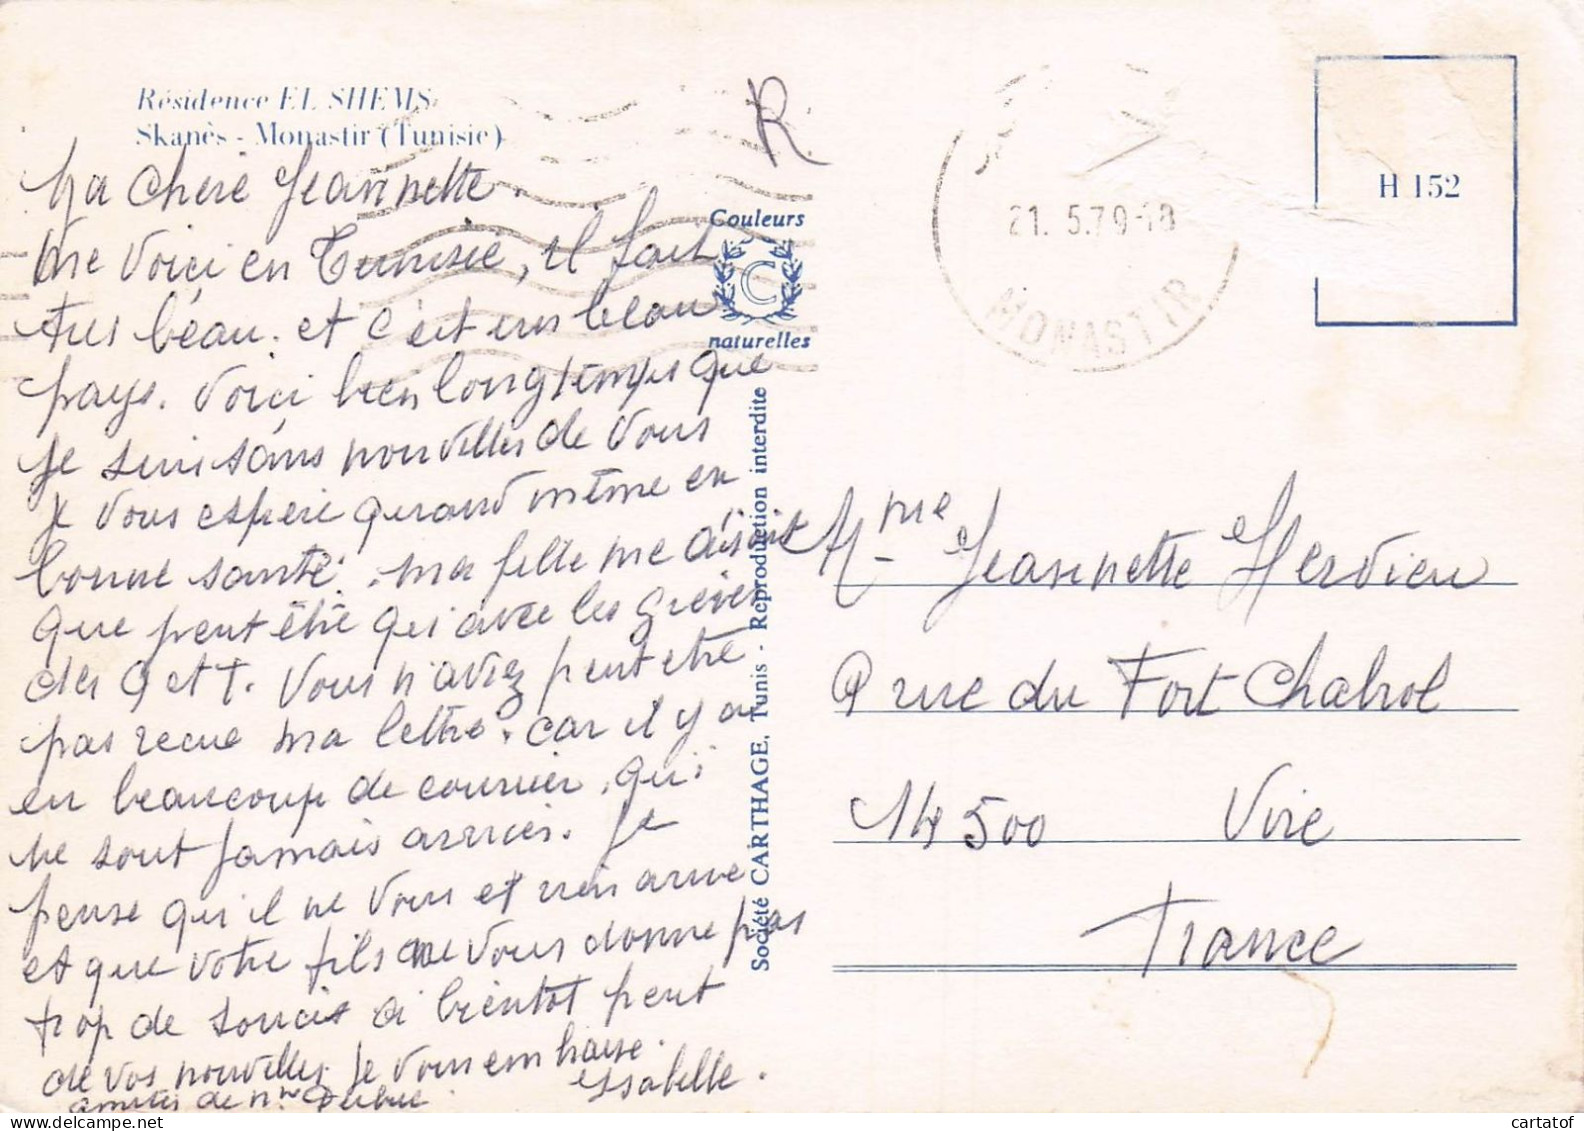 Résidence EL SHEMS
Skanès - Monastir (Tunisie)
R
Ma chère Jeannette.
Me voici en Tunisie, il fait
très béau. et c'est un beau
pays. Voici bien longtemps que
je suis sans nouvelles de vous
je vous espère quand même en
bonne santé. ma fille me disait
que peut être qu'avec les grèves
des P et T. vous n'avez peut etre
pas recue ma lettre. car il y a
eu beaucoup de courrier. qui
ne sont jamais arrivés. je
pense qu'il ne vous et rien arrivé
et que votre fils ne vous donne pas
trop de soucis à bientôt peut
de vos nouvelles. Je vous embrasse.
Isabelle.
amitiés de
Couleurs
C
naturelles
Société CARTHAGE, Tunis - Reproduction interdite
21. 5.79-18
MONASTIR
H 152
Mme Jeannette Herdieu
9 rue du Fort Chabrol
14 500 Vire
France
cartatof